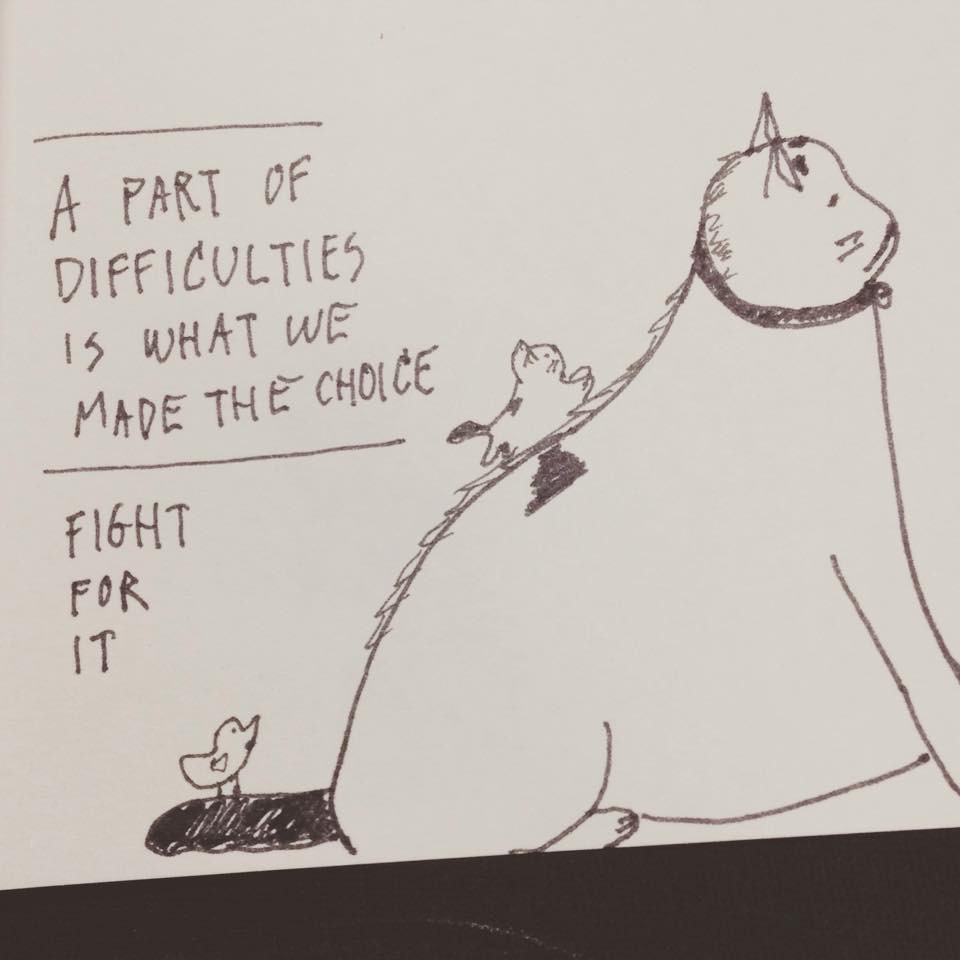 A PART OF
DIFFICULTIES
IS WHAT WE
MADE THE CHOICE
FIGHT
FOR
IT